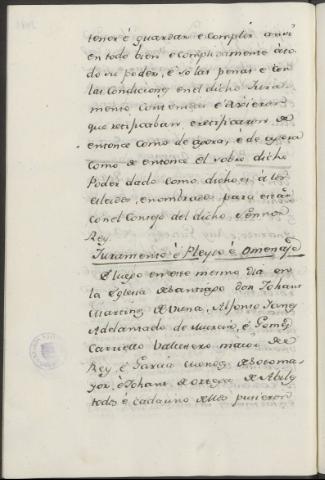 tener é guardar é complir anvi
en todo bien é complidamente á todo
do su poder, é so las penas é con
las condiciones en el dicho Jura-
mento contenidas é dixieron
que retificaban é retificaron de
entonce como de agora, é de agora
como de entonce el sobre dicho
Poder dado como dicho es á los
elexidos, é nombrados para estar
con el Consejo del dicho Sennor
Rey.
Juramento é Pleyto é Omenaje
E luego en este mismo dia en
la Eglesia de Santiago don Johan
Martines de Luna, Alfonso Yanes
Adelantado de Murcia, é Gomes
Carriello Vallestero maior del
Rey, é Garcia Munos de Sotoma-
yor, é Johan de Ortega de Abiles
todos é cada uno dellos pusieron